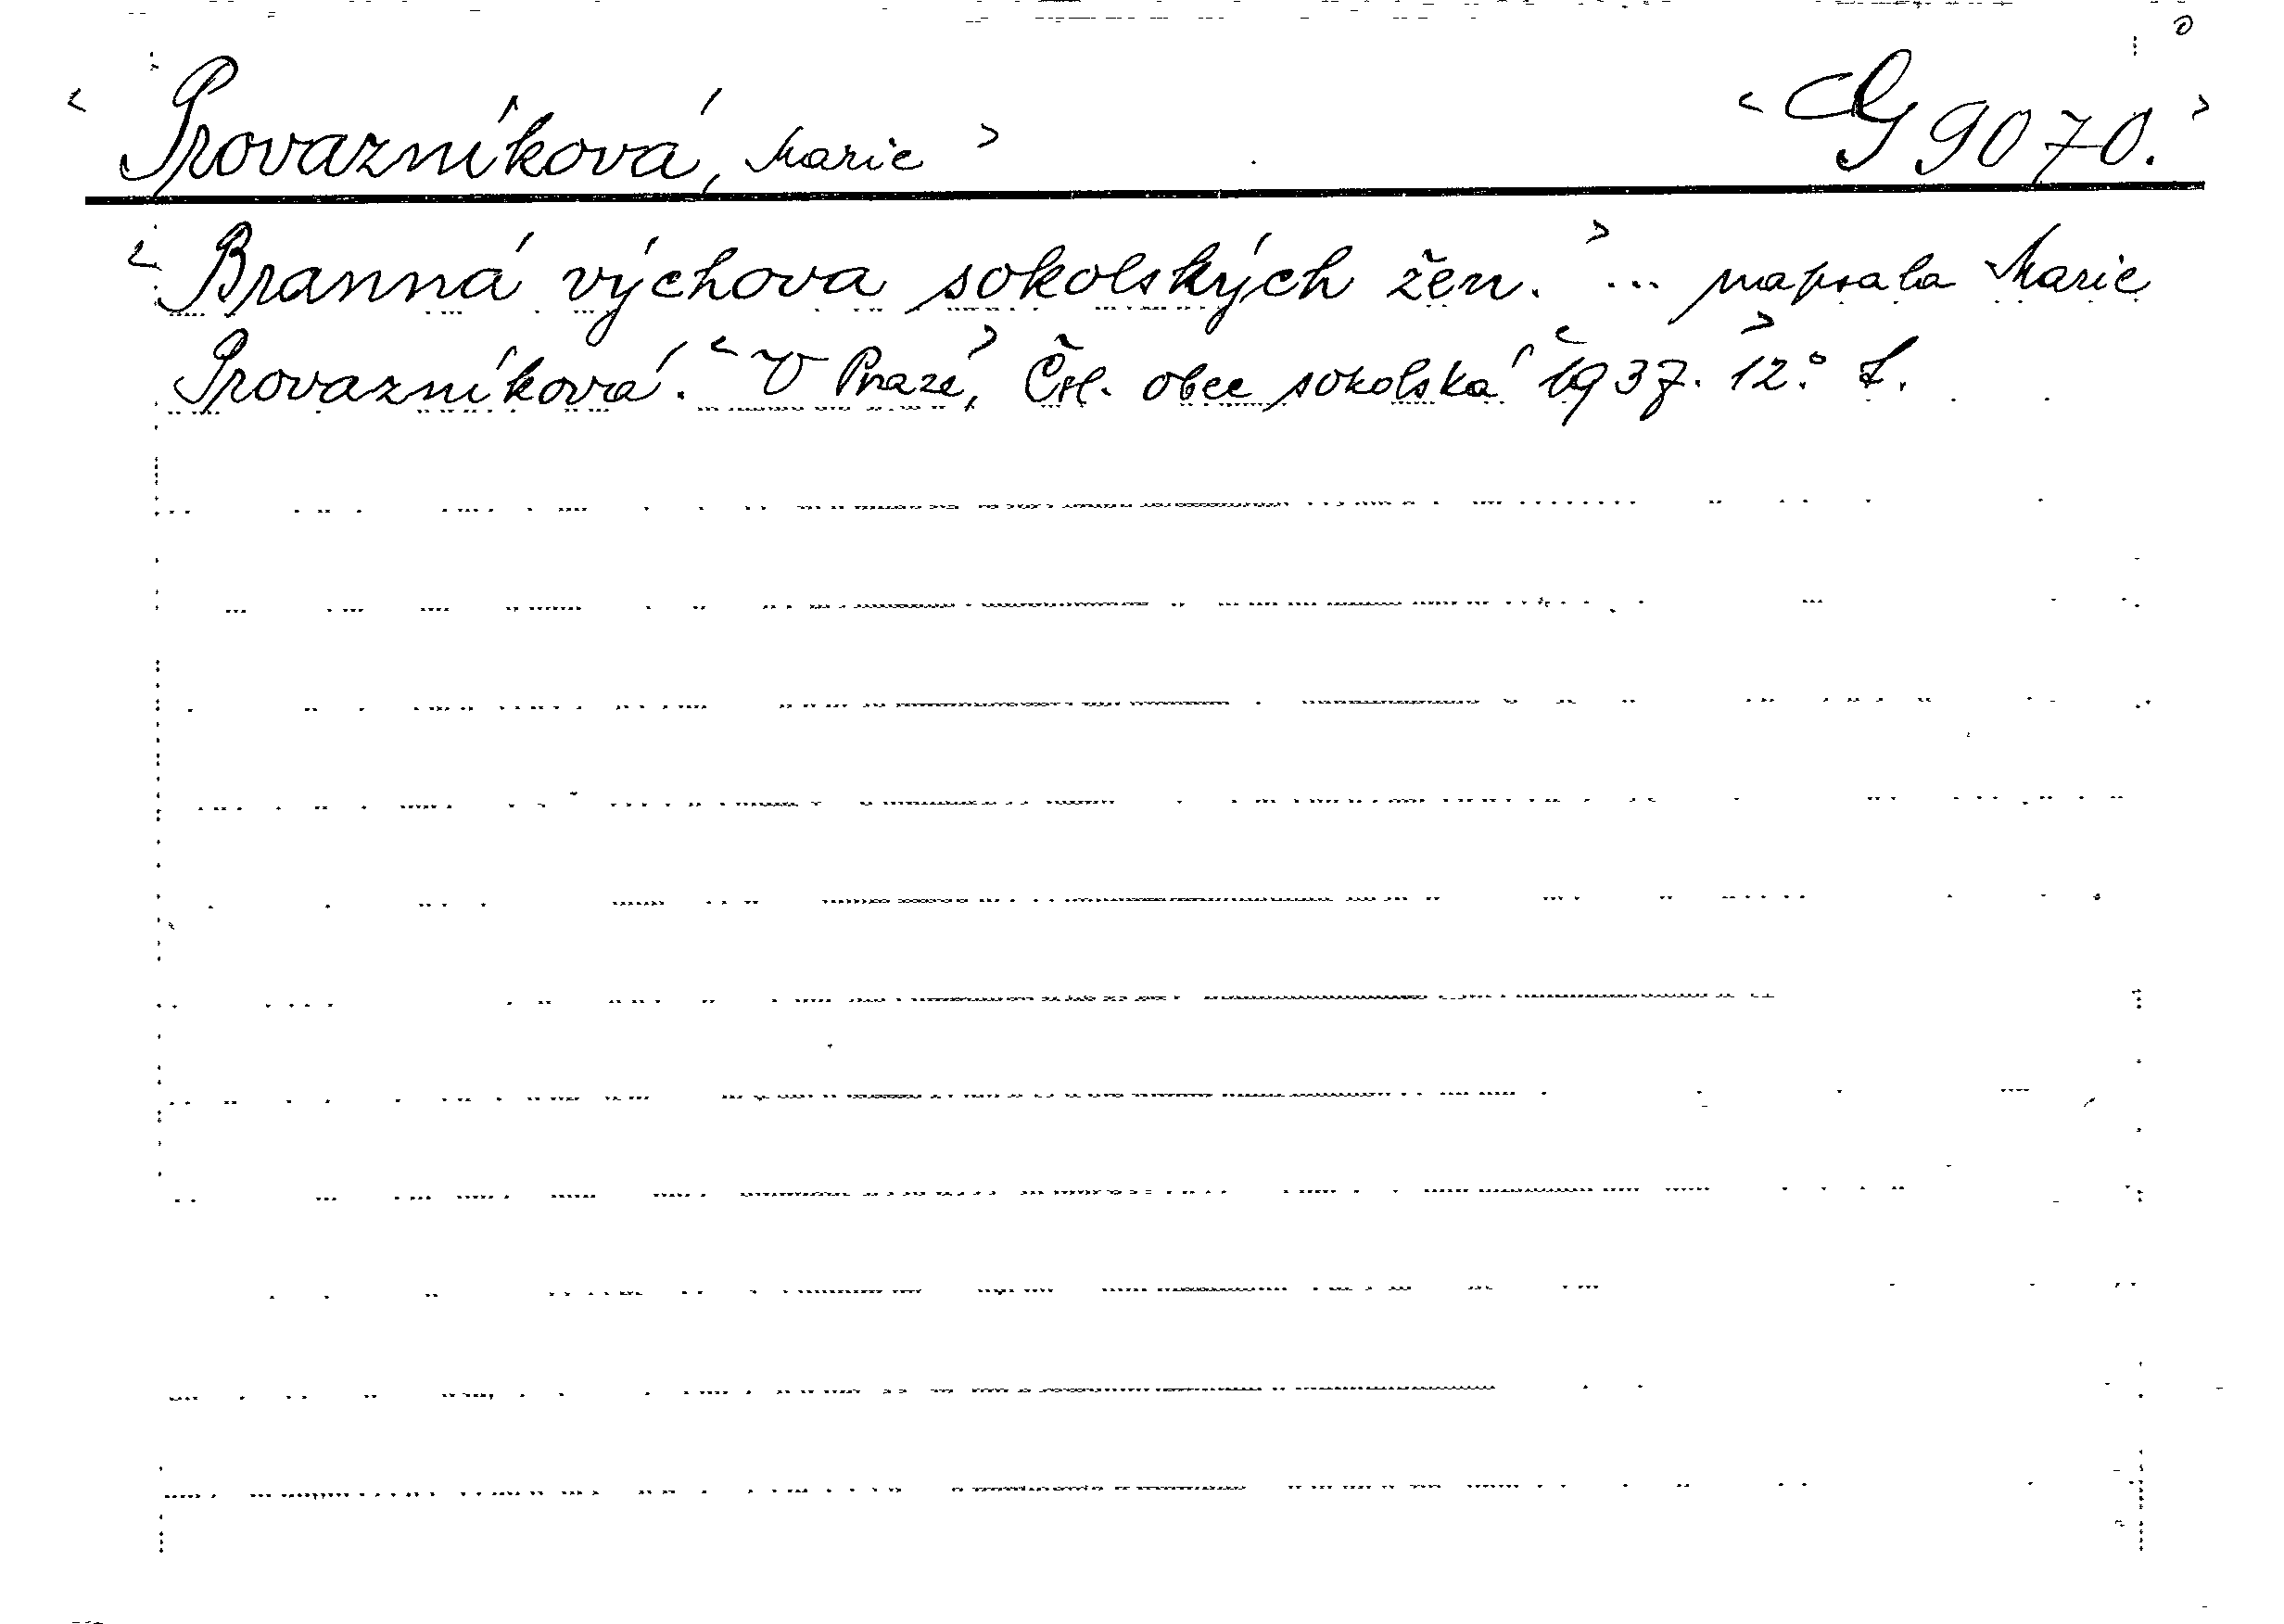 < Provazníková, Marie > < G 9070. >
< Branná výchova sokolských žen. > ... napsala Marie
Provazníková. < V Praze, > Čsl. obec sokolská < 1937. > 12.° L.